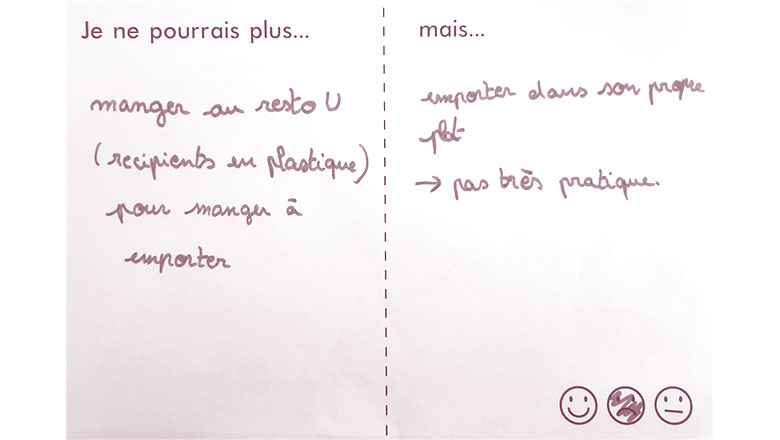 Je ne pourrais plus...
manger au resto U
(recipients en plastique)
pour manger à
emporter
mais...
emporter dans son propre
plat
→ pas très pratique.